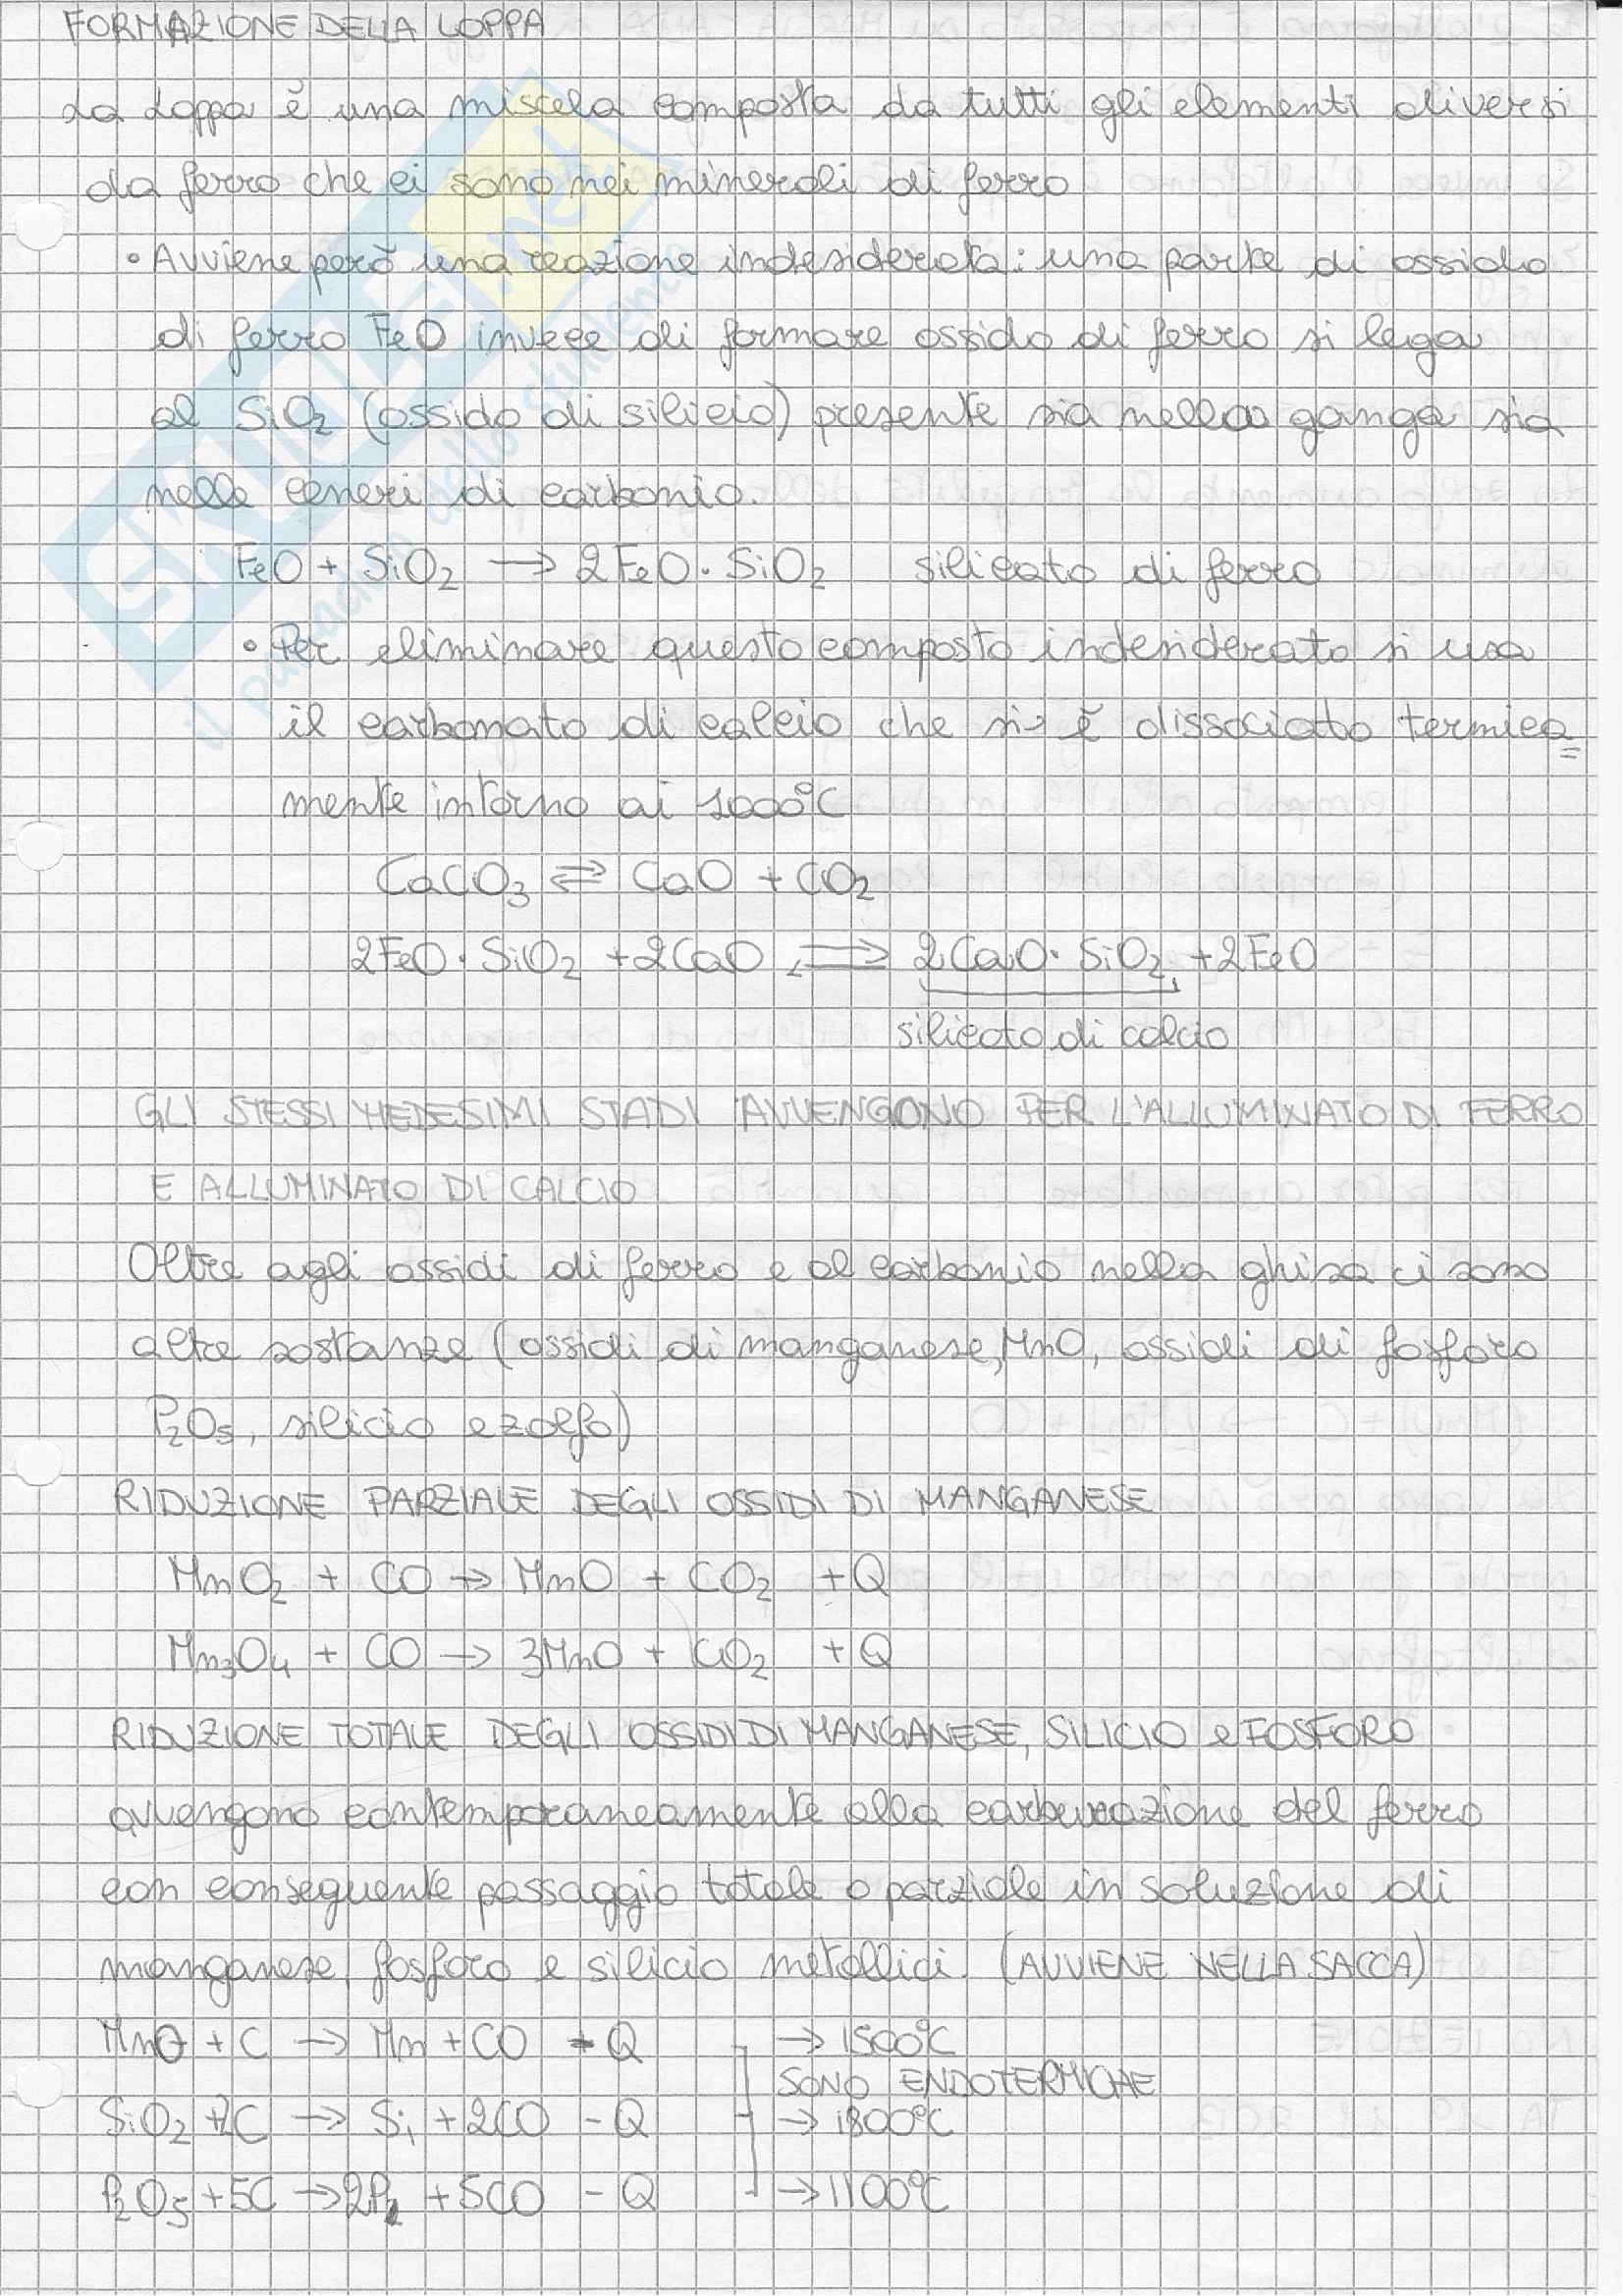 FORMAZIONE DELLA LOPPA
La Loppa è una miscela composta da tutti gli elementi diversi
da ferro che ci sono nei minerali di ferro
• Avviene però una reazione indesiderata: una parte di ossido
di ferro FeO invece di formare ossido di ferro si lega
al SiO₂ (ossido di silicio) presente sia nella ganga sia
nelle ceneri di carbonio.
FeO + SiO₂ → 2FeO · SiO₂ silicato di ferro
• Per eliminare questo composto indesiderato si usa
il carbonato di calcio che si è dissociato termica=
mente intorno ai 1000°C
CaCO₃ ⇌ CaO + CO₂
2FeO · SiO₂ + 2CaO ⇌ 2CaO · SiO₂ + 2FeO
silicato di calcio
GLI STESSI MEDESIMI STADI AVVENGONO PER L'ALLUMINATO DI FERRO
E ALLUMINATO DI CALCIO
Oltre agli ossidi di ferro e al carbonio nella ghisa ci sono
altre sostanze (ossidi di manganese, MnO, ossidi di fosforo
P₂O₅, silicio e zolfo)
RIDUZIONE PARZIALE DEGLI OSSIDI DI MANGANESE
MnO₂ + CO → MnO + CO₂ + Q
Mn₃O₄ + CO → 3MnO + CO₂ + Q
RIDUZIONE TOTALE DEGLI OSSIDI DI MANGANESE, SILICIO e FOSFORO
avvengono contemporaneamente alla carburazione del ferro
con conseguente passaggio totale o parziale in soluzione di
manganese, fosforo e silicio metallici. (AVVIENE NELLA SACCA)
MnO + C → Mn + CO - Q → 1500°C
SONO ENDOTERMICHE
SiO₂ + 2C → Si + 2CO - Q → 1800°C
P₂O₅ + 5C → 2P₂ + 5CO - Q → 1100°C
SKUOLA.net
il paradiso dello studente